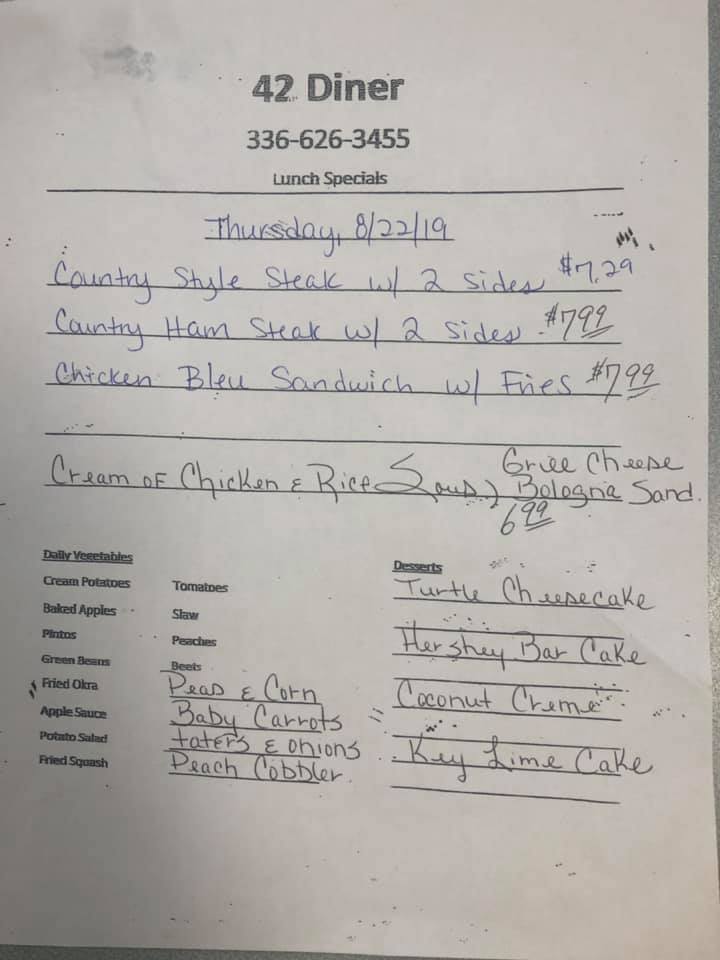 42 Diner
336-626-3455
Lunch Specials
Thursday, 8/22/19
Country Style Steak w/ 2 sides $7.29
Country Ham Steak w/ 2 sides $7.99
Chicken Bleu Sandwich w/ Fries $7.99
Grill Cheese
Cream of Chicken & Rice Soup, Bologna Sand.
6.99
Daily Vegetables
Cream Potatoes
Baked Apples
Pintos
Green Beans
Fried Okra
Apple Sauce
Potato Salad
Fried Squash
Tomatoes
Slaw
Peaches
Beets
Peas & Corn
Baby Carrots
taters & onions
Peach Cobbler
Desserts
Turtle Cheesecake
Hershey Bar Cake
Coconut Creme
Key Lime Cake